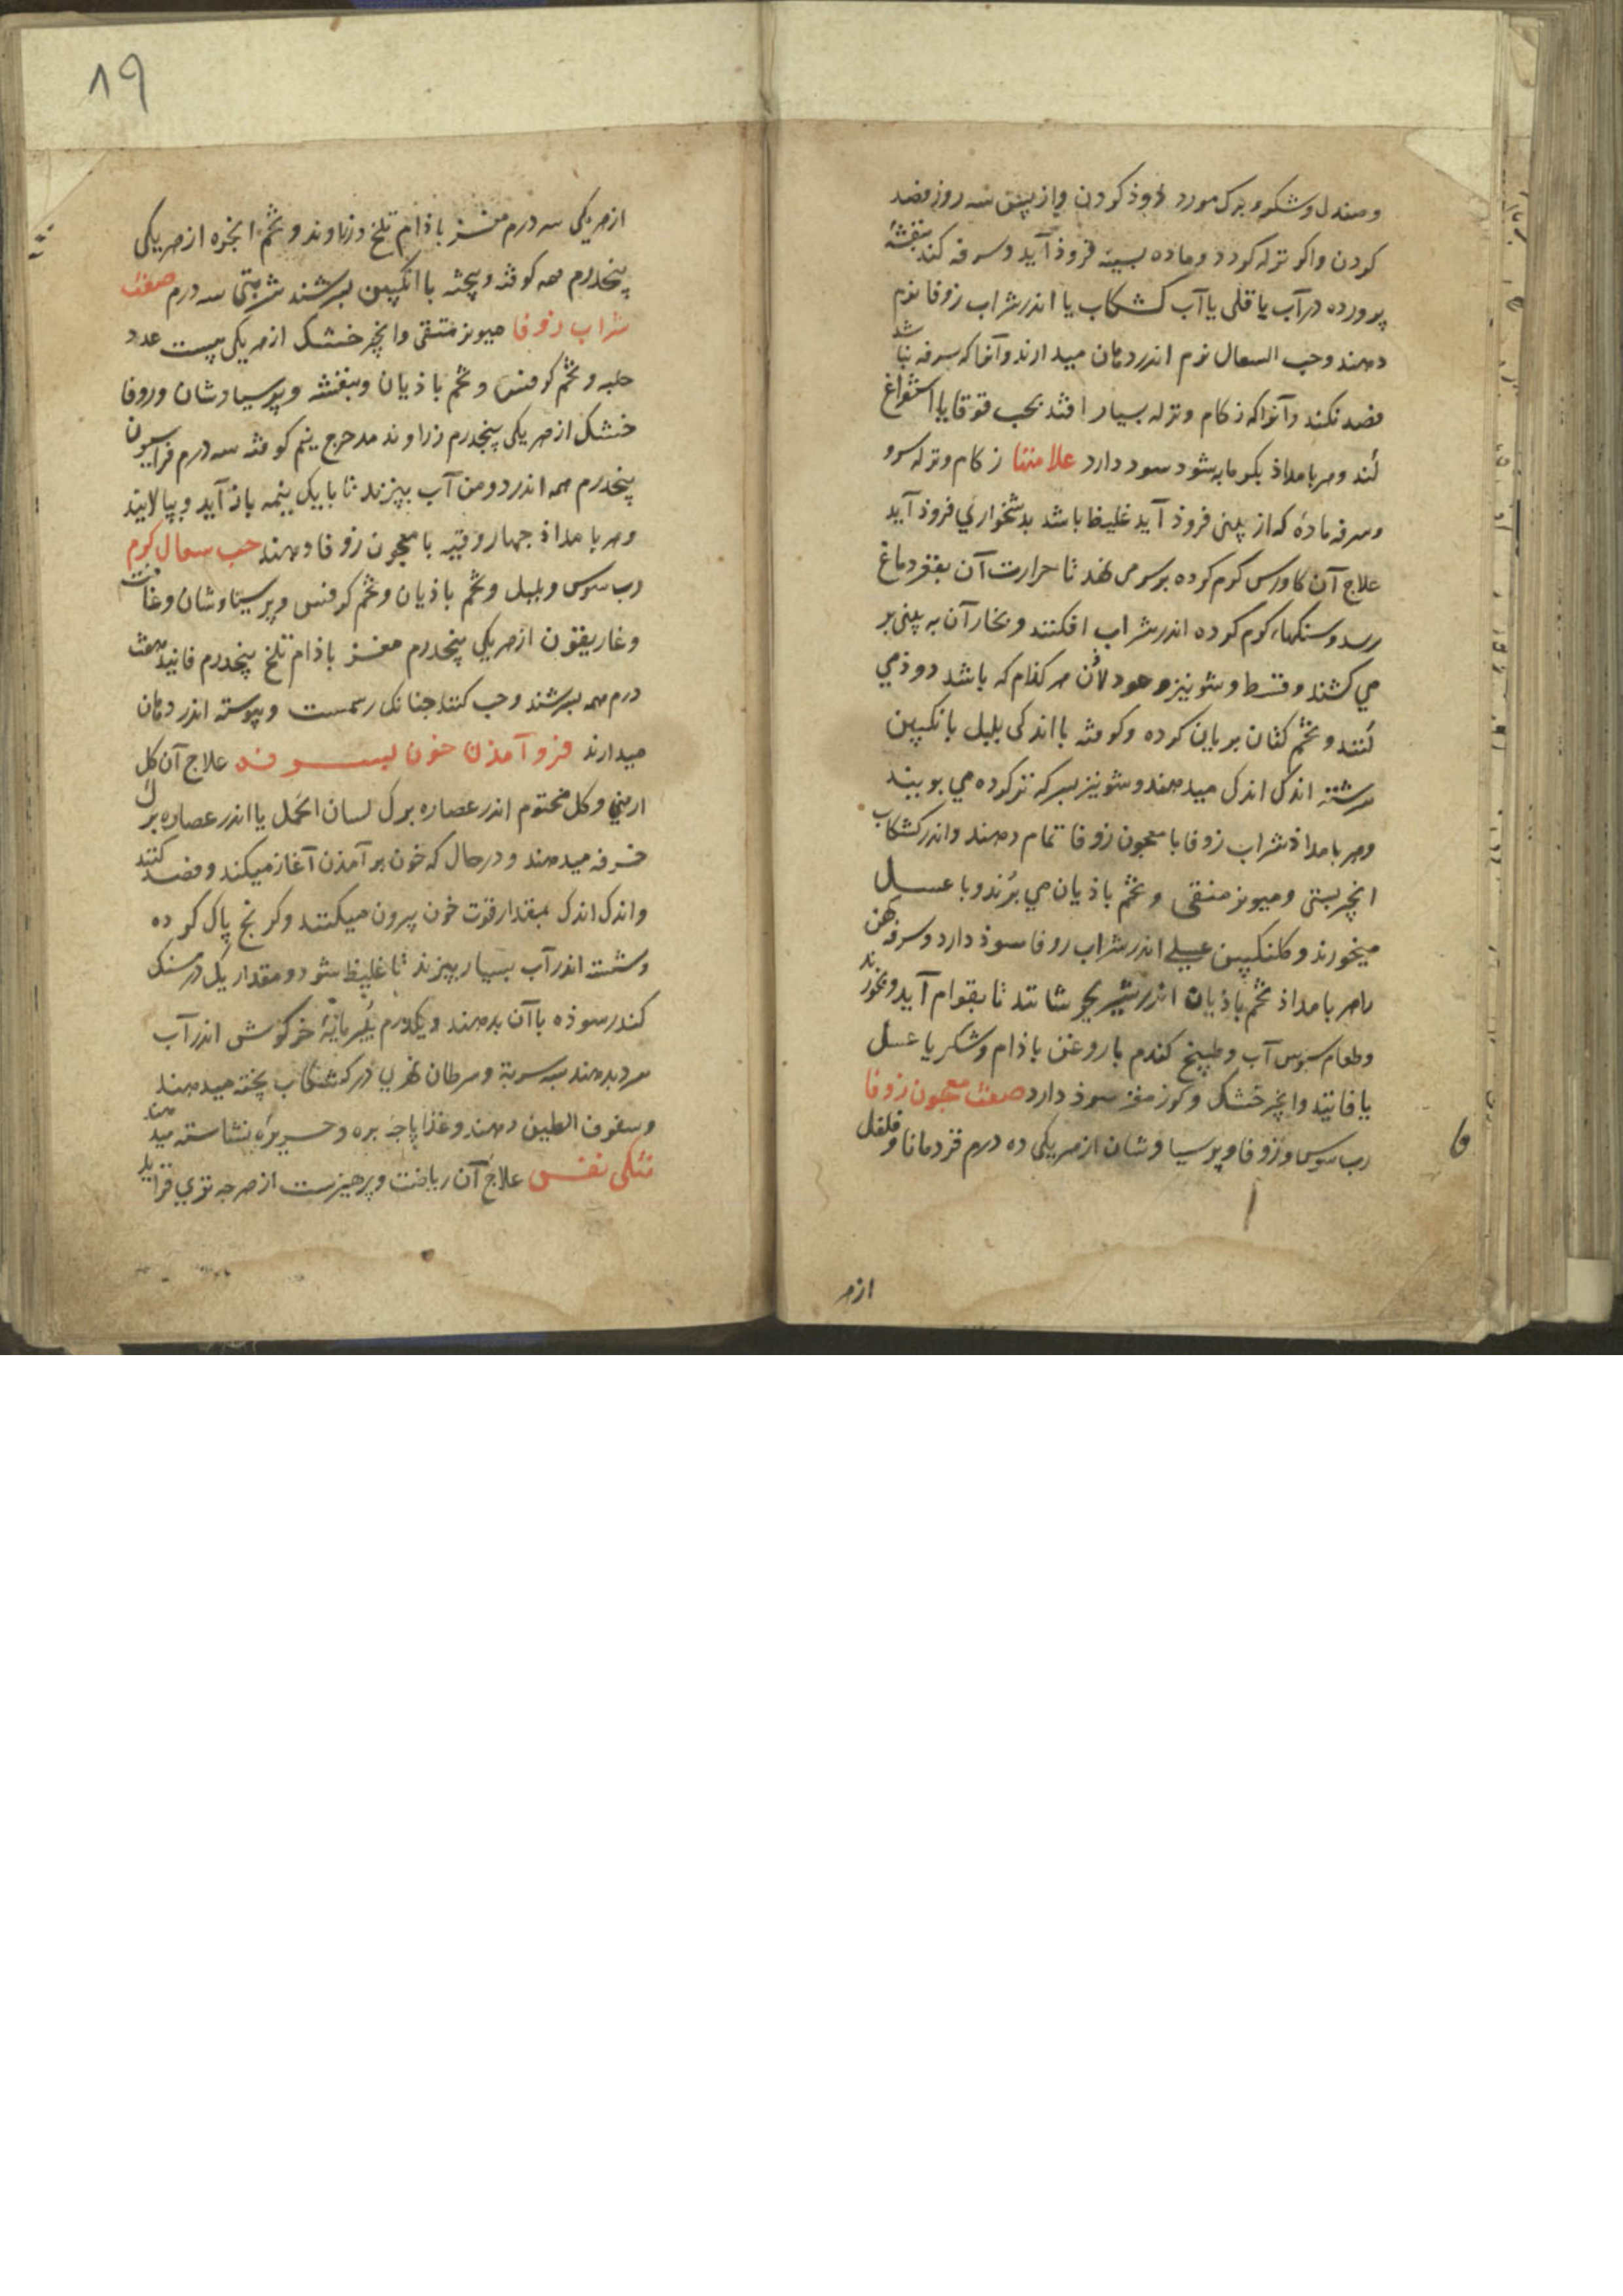 وصندل وشکر و برک مورد دوذ کردن واز پس سه روز فصد
کردن واکر نزله کردد وماده بسینه فروذ آید وسرفه کند بنفشهٔ
پرورده در آب یا قلی یا آب کشکاب یا اندر شراب زوفا نرم
دهند وحب السعال نرم اندر دهان میدارند وآنرا که سرفه نباشد
فصد نکند وآنرا که زکام ونزله بسیار افتد بحب قوقایا استفراغ
کند وهر بامداذ بکرمابه شود سود دارد علامتها زکام ونزله سرد
وسرفه مادهٔ که از بینی فروذ آید غلیظ باشد بدشخواري فروذ آید
علاج آن کاورس کرم کرده بر سر می نهد تا حرارت آن بقعر دماغ
رسد وسنکهاء کرم کرده اندر شراب افکنند وبخار آن به بینی بر
می کشند وقسط وشونیز وعود لاذن هر کذام که باشد دوذ می
کنند وتخم کتان بریان کرده وکوفته با اندکی بلبل بانکبین
سرشته اندک اندک میدهند وشونیز بسرکه تر کرده می بویند
وهر بامداذ شراب زوفا با معجون زوفا تمام دهند واندر کشکاب
انجیر بستی ومیویز منقی وتخم باذیان می پزند وبا عسل
میخورند وکلنکبین عسلی اندر شراب زوفا سوذ دارد وسرفه کهن
را هر بامداذ تخم باذیان اندر شیر بجوشانند تا بقوام آید وبخورند
وطعام سبوس آب وطبیخ کندم با روغن باذام وشکر یا عسل
یا فانید وانجیر خشک وکوز مغز سوذ دارد صفت معجون زوفا
رب سوس وزوفا وپرسیاوشان از هر یکی ده درم قردمانا وفلفل
از هر
۸۹
از هر یکی سه درم مغز باذام تلخ وزراوند وتخم انجره از هر یکی
پنجدرم همه کوفته وبیخته با انکبین بسرشند شربتی سه درم صفت
شراب زوفا میویز منقی وانجیر خشک از هر یکی بیست عدد
حلبه وتخم کرفس وتخم باذیان وبنفشه وپرسیاوشان وزوفا
خشک از هر یکی پنجدرم زراوند مدحرج نیم کوفته سه درم فراسیون
پنجدرم همه اندر دو من آب بپزند تا با یک نیمه باز آید وبپالایند
وهر بامداذ چهار وقیه با معجون زوفا دهند حب سعال کرم
رب سوس وبلبل وتخم باذیان وتخم کرفس وپرسیاوشان وغافت
وغاریقون از هر یکی پنجدرم مغز باذام تلخ پنجدرم فانید هفت
درم همه بسرشند وحب کنند چنانک رسمست وپیوسته اندر دهان
میدارند فروآمذن خون بسرفه علاج آن کل
ارمنی وکل مختوم اندر عصاره برک لسان الحمل یا اندر عصاره برک
خرفه میدهند ودر حال که خون بر آمذن آغاز میکند وفصد کنند
واندک اندک بمقدار قوت خون بیرون میکنند وکرنج پاک کرده
وشسته اندر آب بسیار بپزند تا غلیظ شود ومقدار یک درمسنک
کندر سوذه با آن بدهند ویکدرم پنیر مایهٔ خرکوش اندر آب
سرد بدهند سه شربة وسرطان نهري در کشکاب پخته میدهند
وسفوف الطین دهند وغذا پاچه بره وحریرهٔ نشاسته میدهند
تنکی نفس علاج آن ریاضت وپرهیزست از هر چه تري فزاید